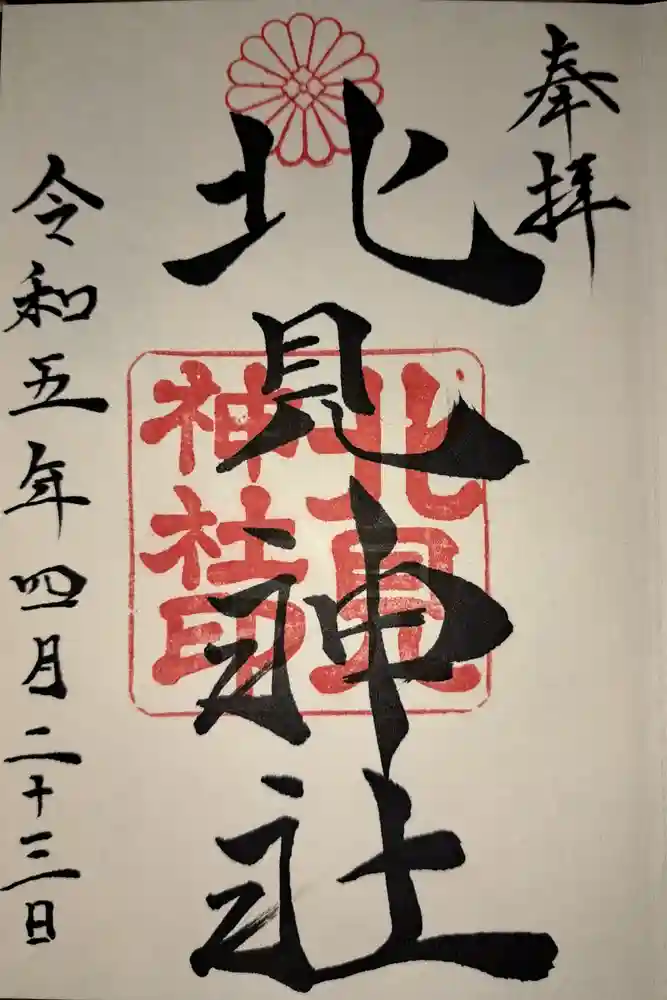 奉拝
北見神社
北見
神社印
令和五年四月二十三日